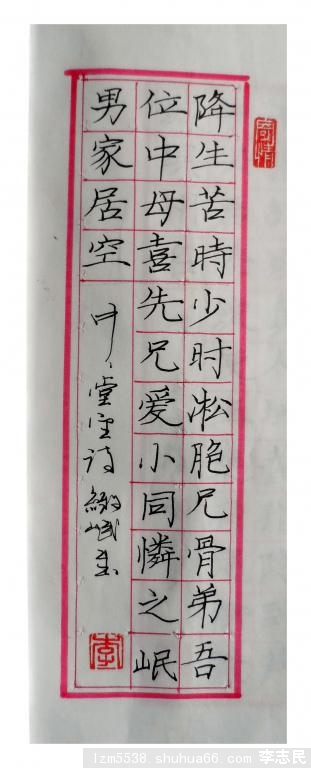 寄情
降生苦時少时凇胞兄骨弟吾
位中母喜先兄爱小同憐之岷
男家居空
堂 诗 岷书
李
lzm5538.shuhua66.com 李志民